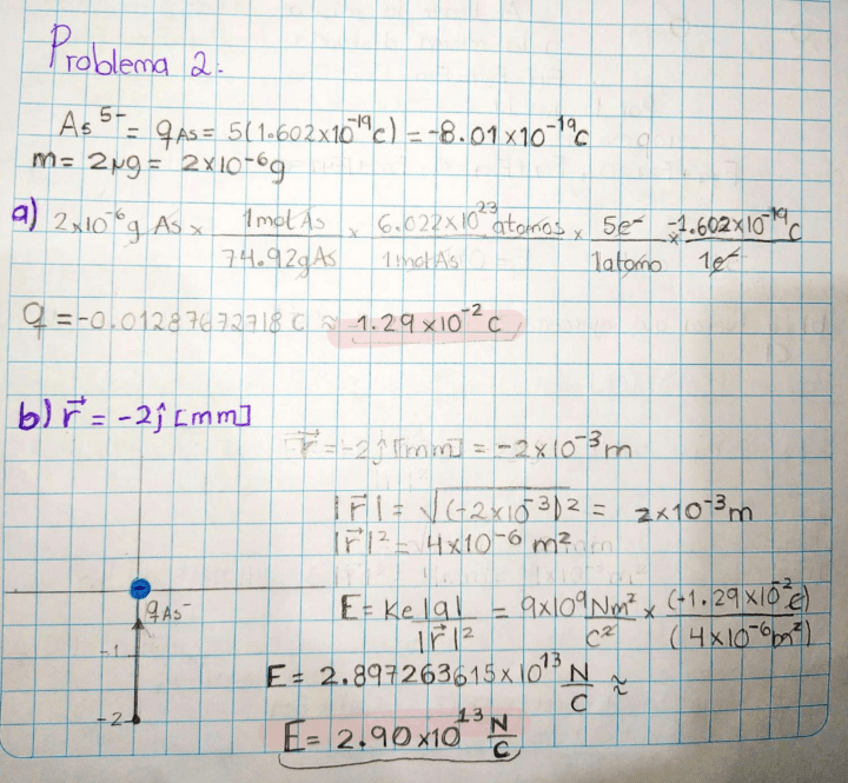 Problema 2.
As⁵⁻ = qAs = 5(1.602x10⁻¹⁹c) = -8.01x10⁻¹⁹c
m = 2μg = 2x10⁻⁶g
a) 2x10⁻⁶g As x 1mol As / 74.92g As x 6.022x10²³ atomos / 1mol As x 5e⁻ / 1atomo x -1.602x10⁻¹⁹c / 1e⁻
q = -0.01287672718 C ≈ -1.29x10⁻² c
b) r⃗ = -2ĵ [mm]
r⃗ = -2ĵ [mm] = -2x10⁻³m
|r⃗| = √(-2x10⁻³)² = 2x10⁻³m
|r⃗|² = 4x10⁻⁶ m²
qAs⁻
E = Ke|q| / |r⃗|² = 9x10⁹ Nm² / c² x (-1.29x10⁻²c) / (4x10⁻⁶m²)
-1
E = 2.897263615x10¹³ N/C ≈
-2
E = 2.90x10¹³ N/C